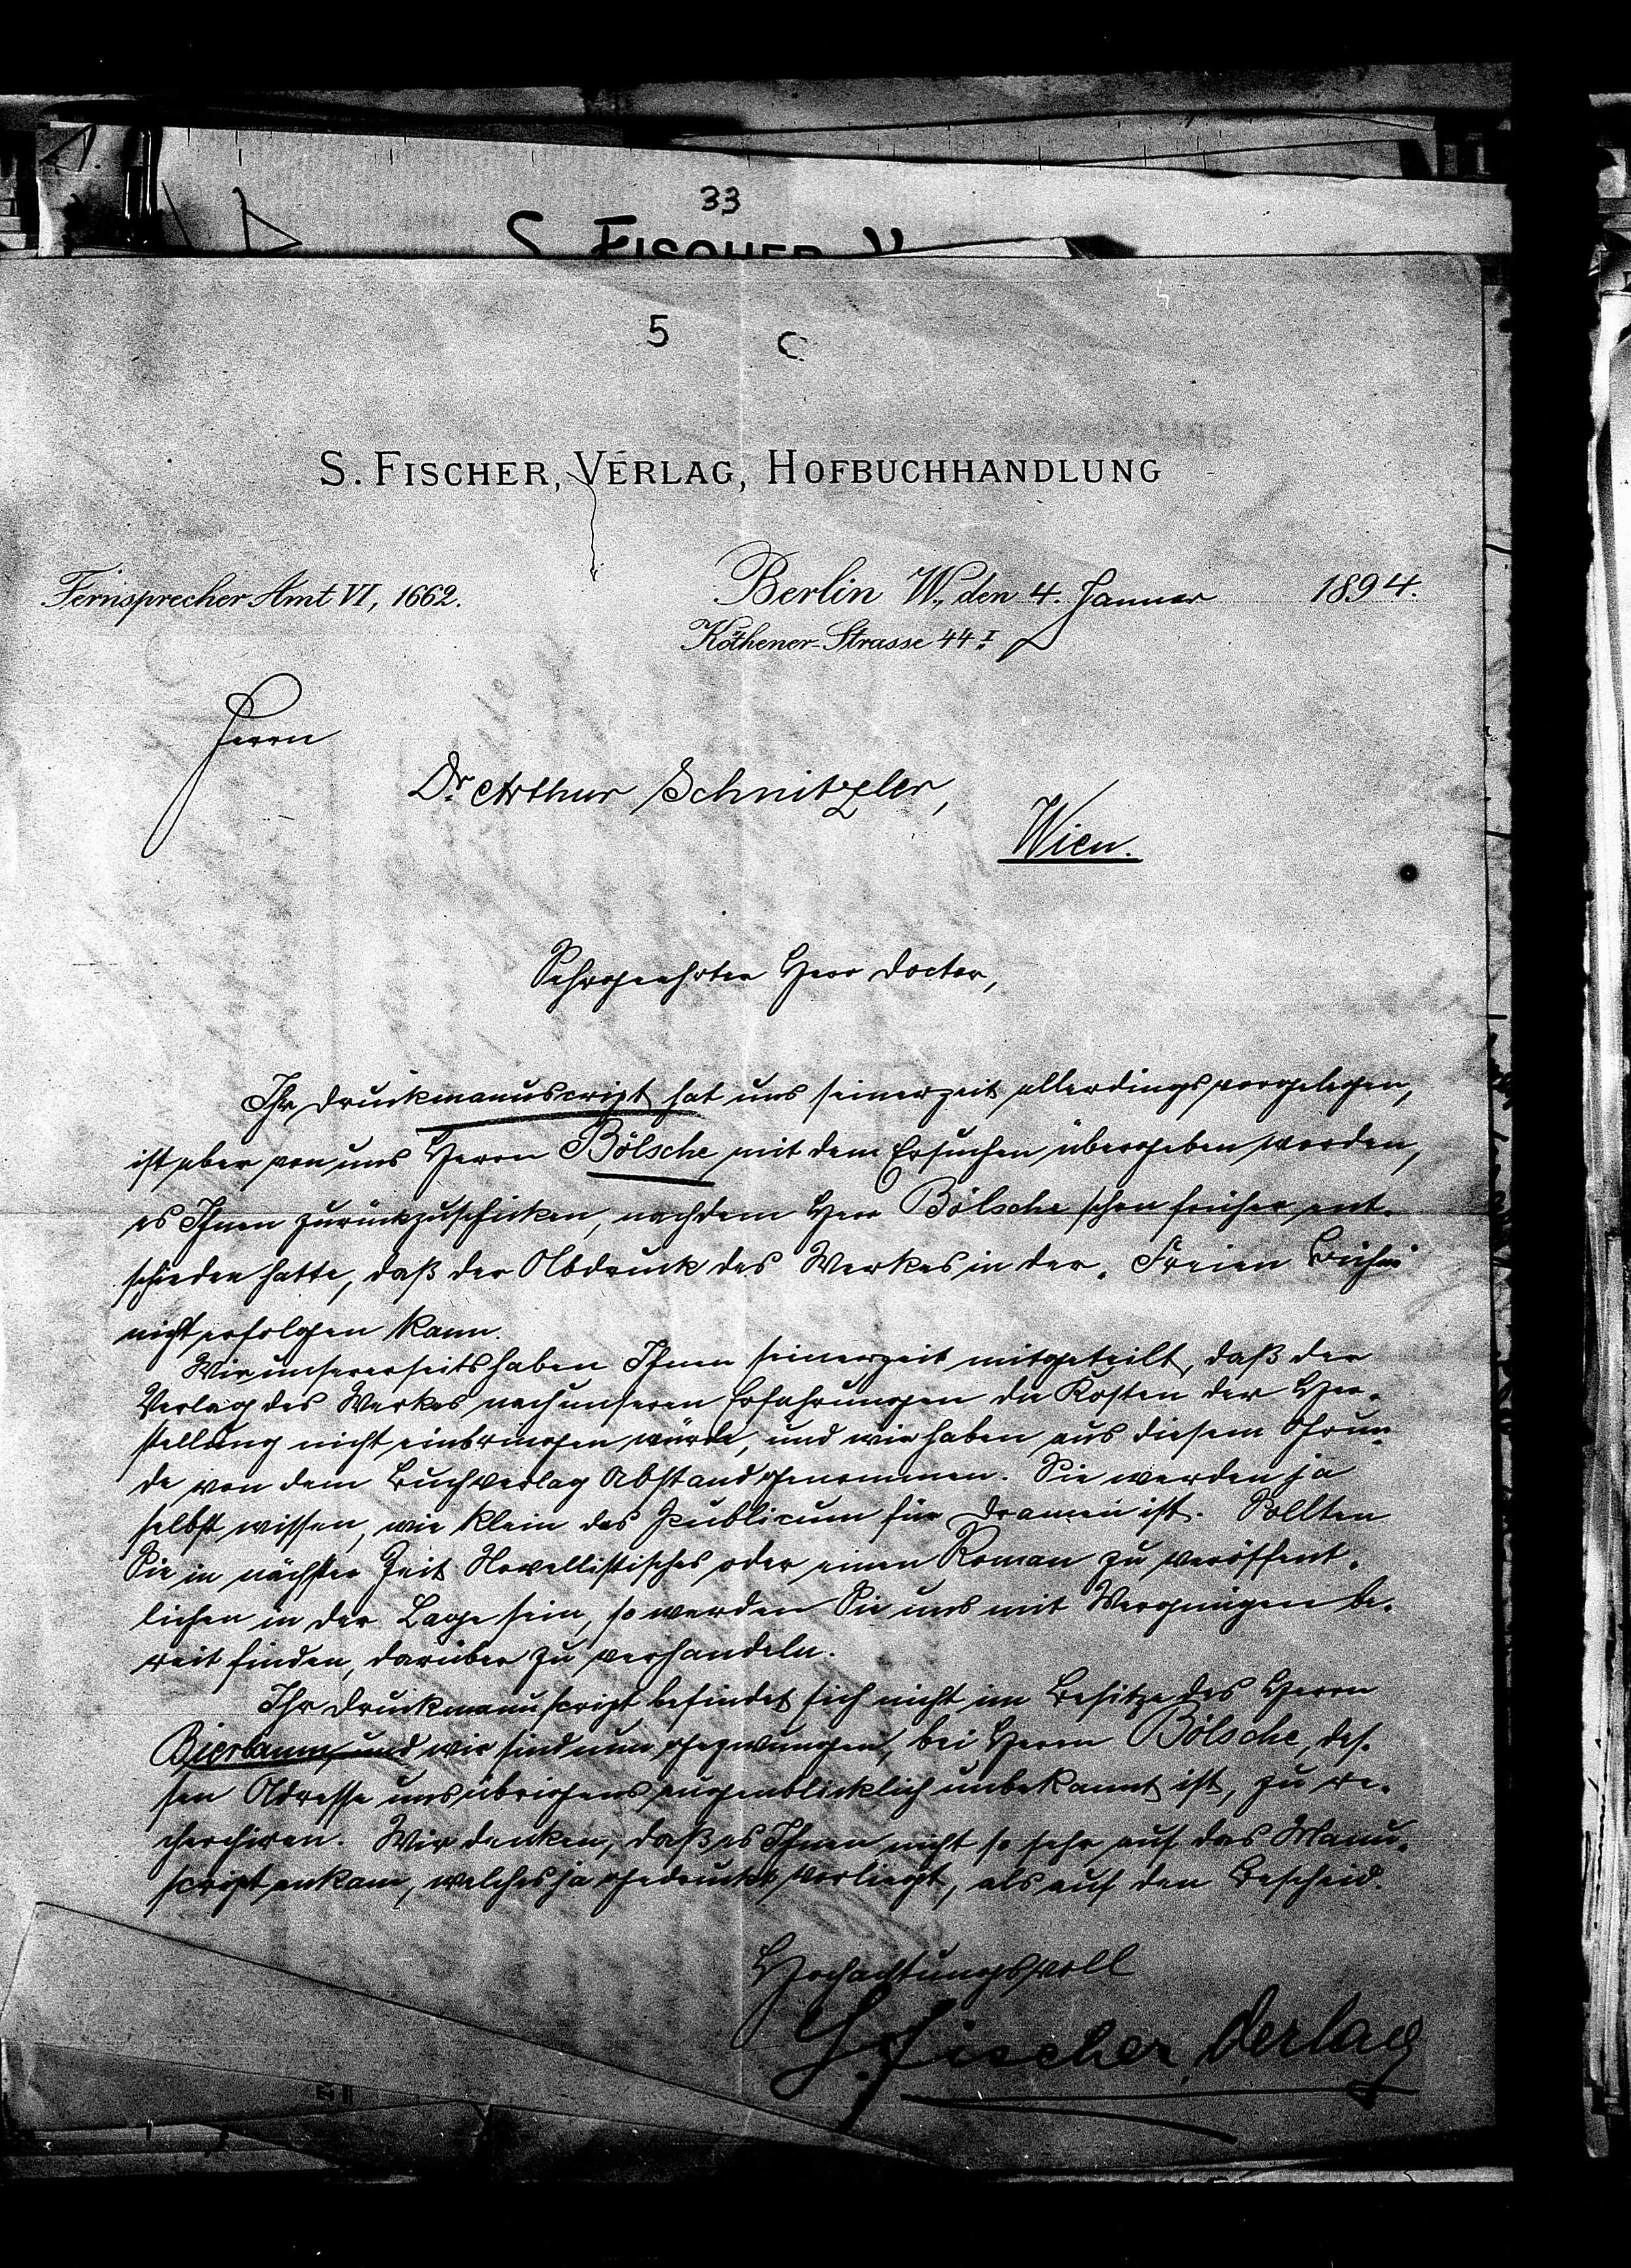 33
S. FISCHER, V
5 C
S. FISCHER, VERLAG, HOFBUCHHANDLUNG
Fernsprecher Amt VI, 1662.
Berlin W., den 4. Januar 1894.
Köthener-Strasse 44 I
Herrn
Dr. Arthur Schnitzler,
Wien.
Sehrgeehrter Herr Doctor,
Ihr Druckmanuscript hat uns seinerzeit allerdings vorgelegen,
ist aber von uns Herrn Bölsche mit dem Ersuchen übergeben worden,
es Ihnen zurückzuschicken, nachdem Herr Bölsche schon früher ent-
schieden hatte, daß der Abdruck des Werkes in der „Freien Bühne
nicht erfolgen kann.
Wir unsererseits haben Ihnen seinerzeit mitgeteilt, daß der
Verlag des Werkes nach unseren Erfahrungen die Kosten der Her-
stellung nicht einbringen würde, und wir haben aus diesem Grun-
de von dem Buchverlag Abstand genommen. Sie werden ja
selbst wissen, wie klein das Publicum für Dramen ist. Sollten
Sie in nächster Zeit Novellistisches oder einen Roman zu veröffent-
lichen in der Lage sein, so werden Sie uns mit Vergnügen be-
reit finden, darüber zu verhandeln.
Ihr Druckmanuscript befindet sich nicht im Besitze des Herrn
Bierbaum, und wir sind nun gezwungen, bei Herrn Bölsche, des-
sen Adresse uns übrigens augenblicklich unbekannt ist, zu re-
cherchiren. Wir denken, daß es Ihnen nicht so sehr auf das Manu-
script ankam, welches ja gedruckt vorliegt, als auf den Bescheid.
Hochachtungsvoll
S. Fischer, Verlag